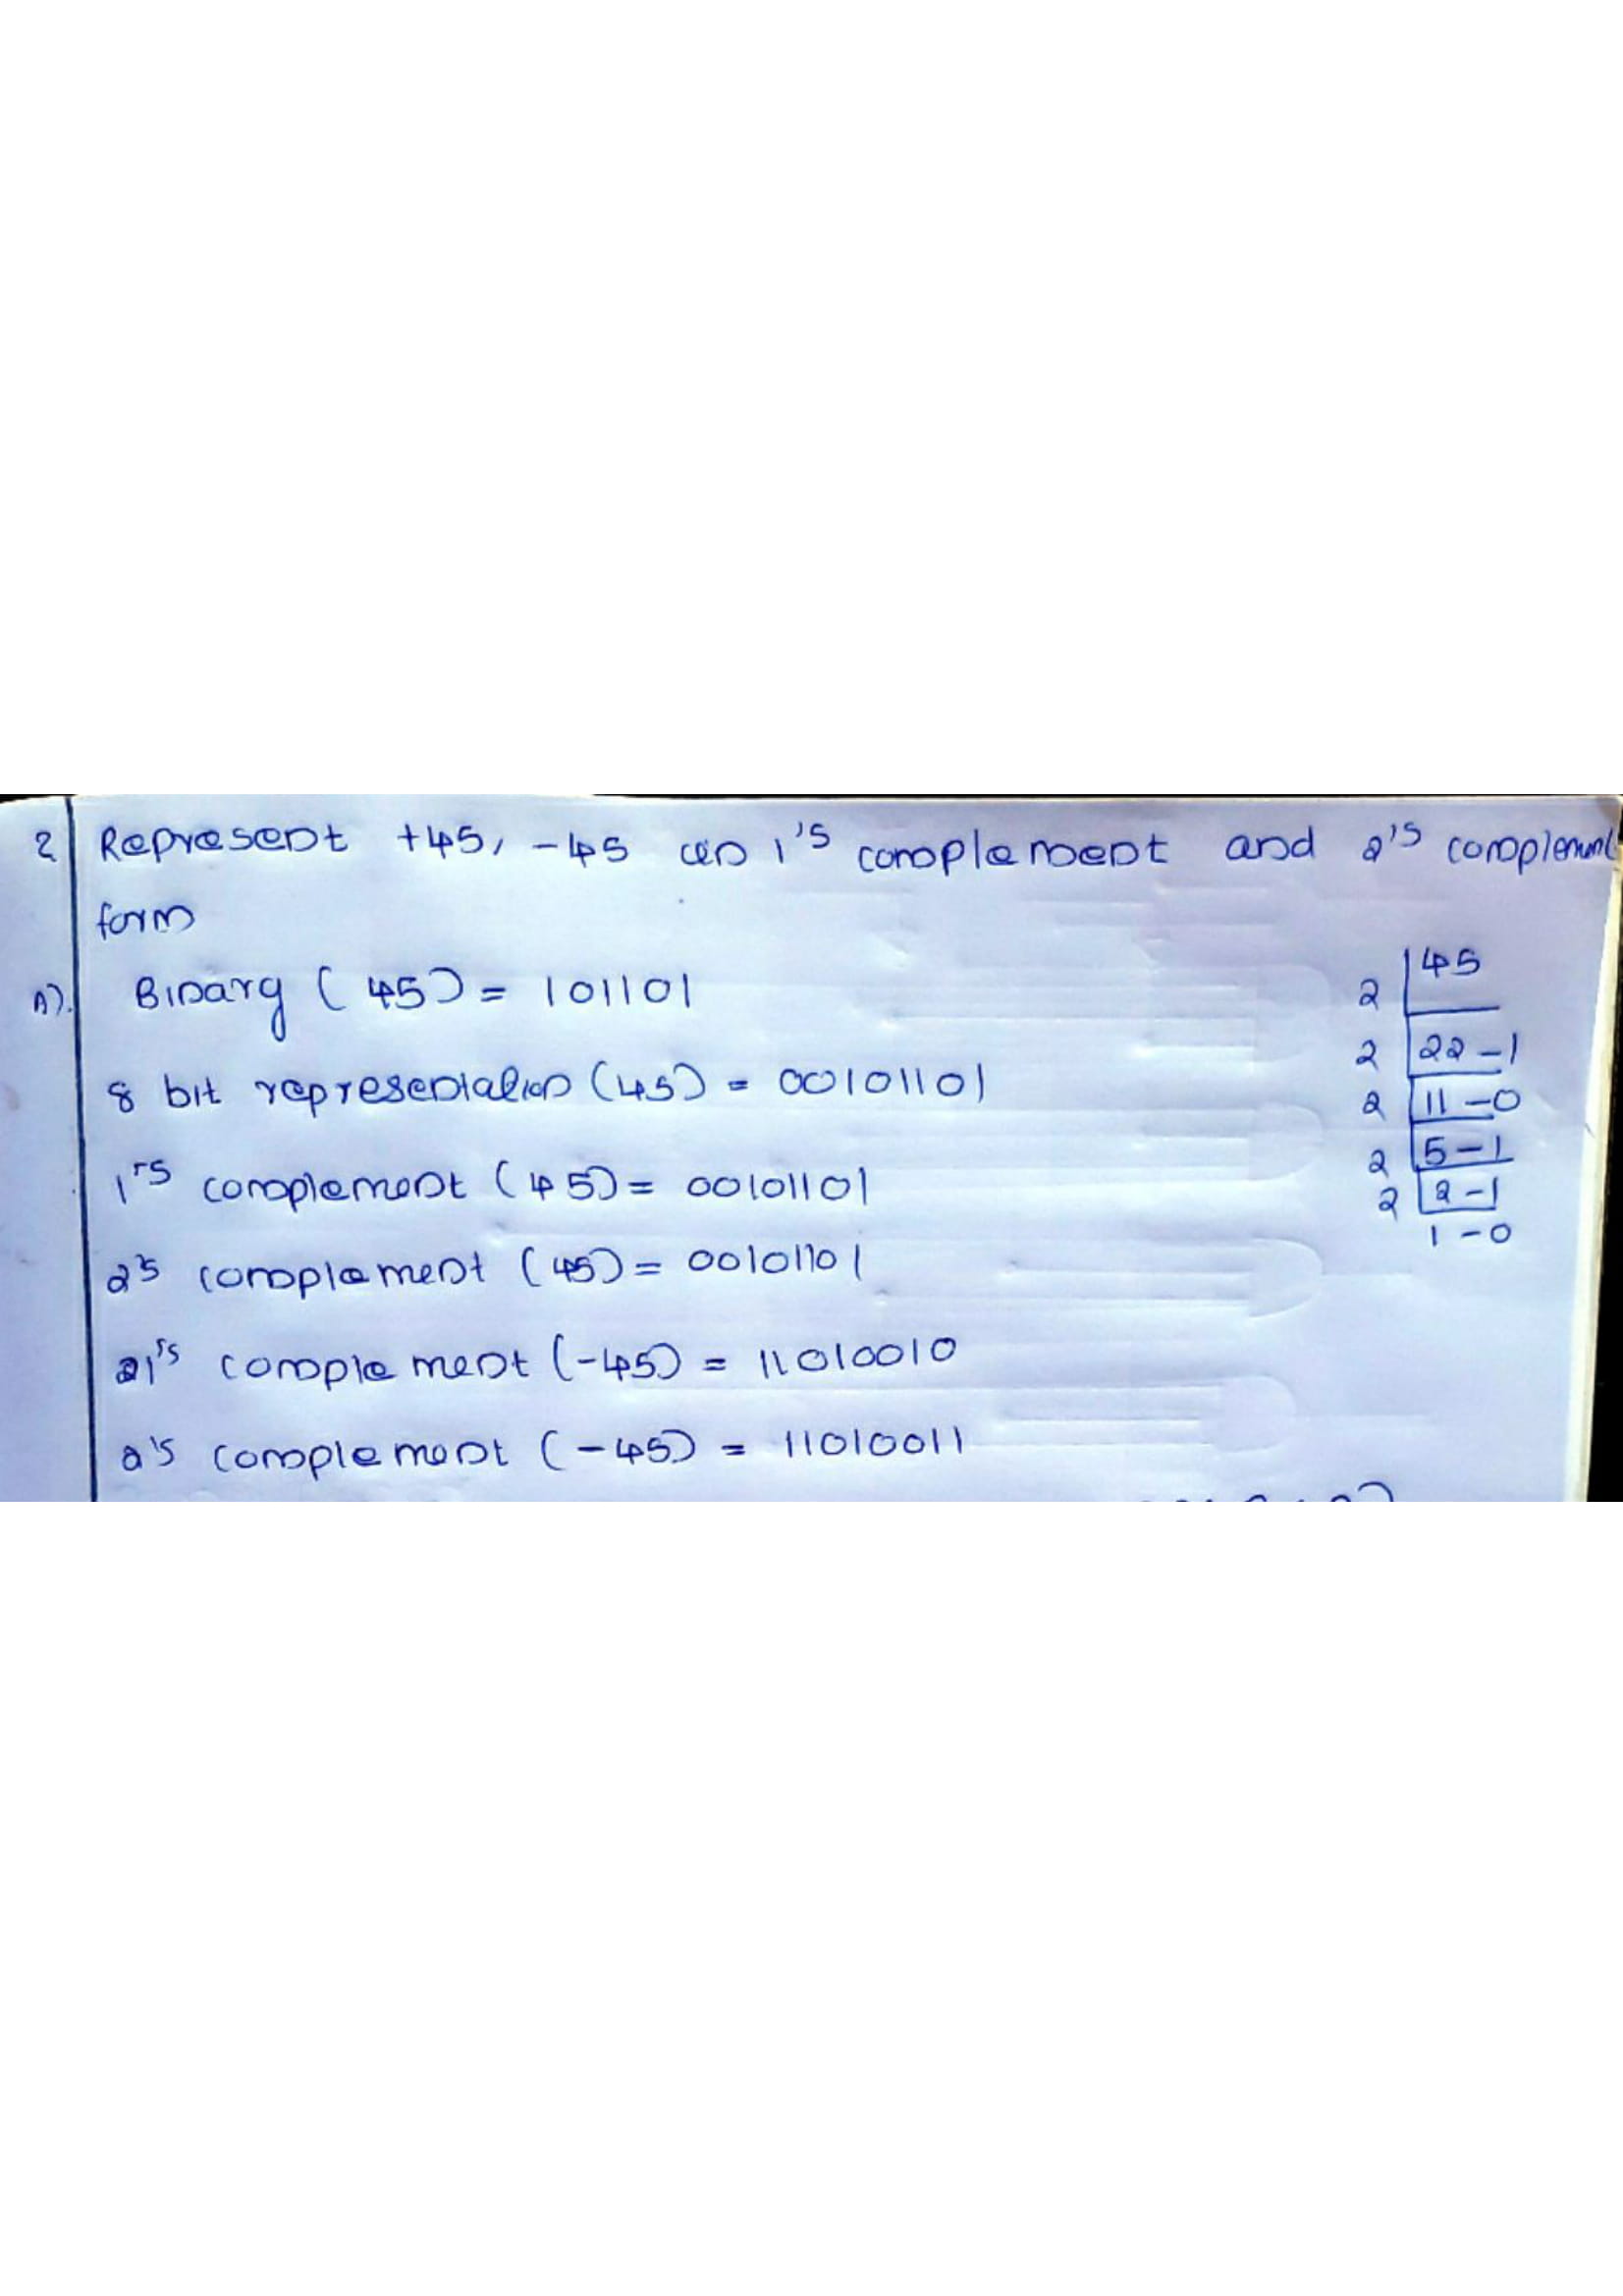 2 Represent +45, -45 in 1's complement and 2's complement
form
A). Binary (45) = 101101
8 bit representation (45) = 00101101
1's complement (45) = 00101101
2's complement (45) = 00101101
1's complement (-45) = 11010010
2's complement (-45) = 11010011
2 | 45
2 | 22 - 1
2 | 11 - 0
2 | 5 - 1
2 | 2 - 1
1 - 0